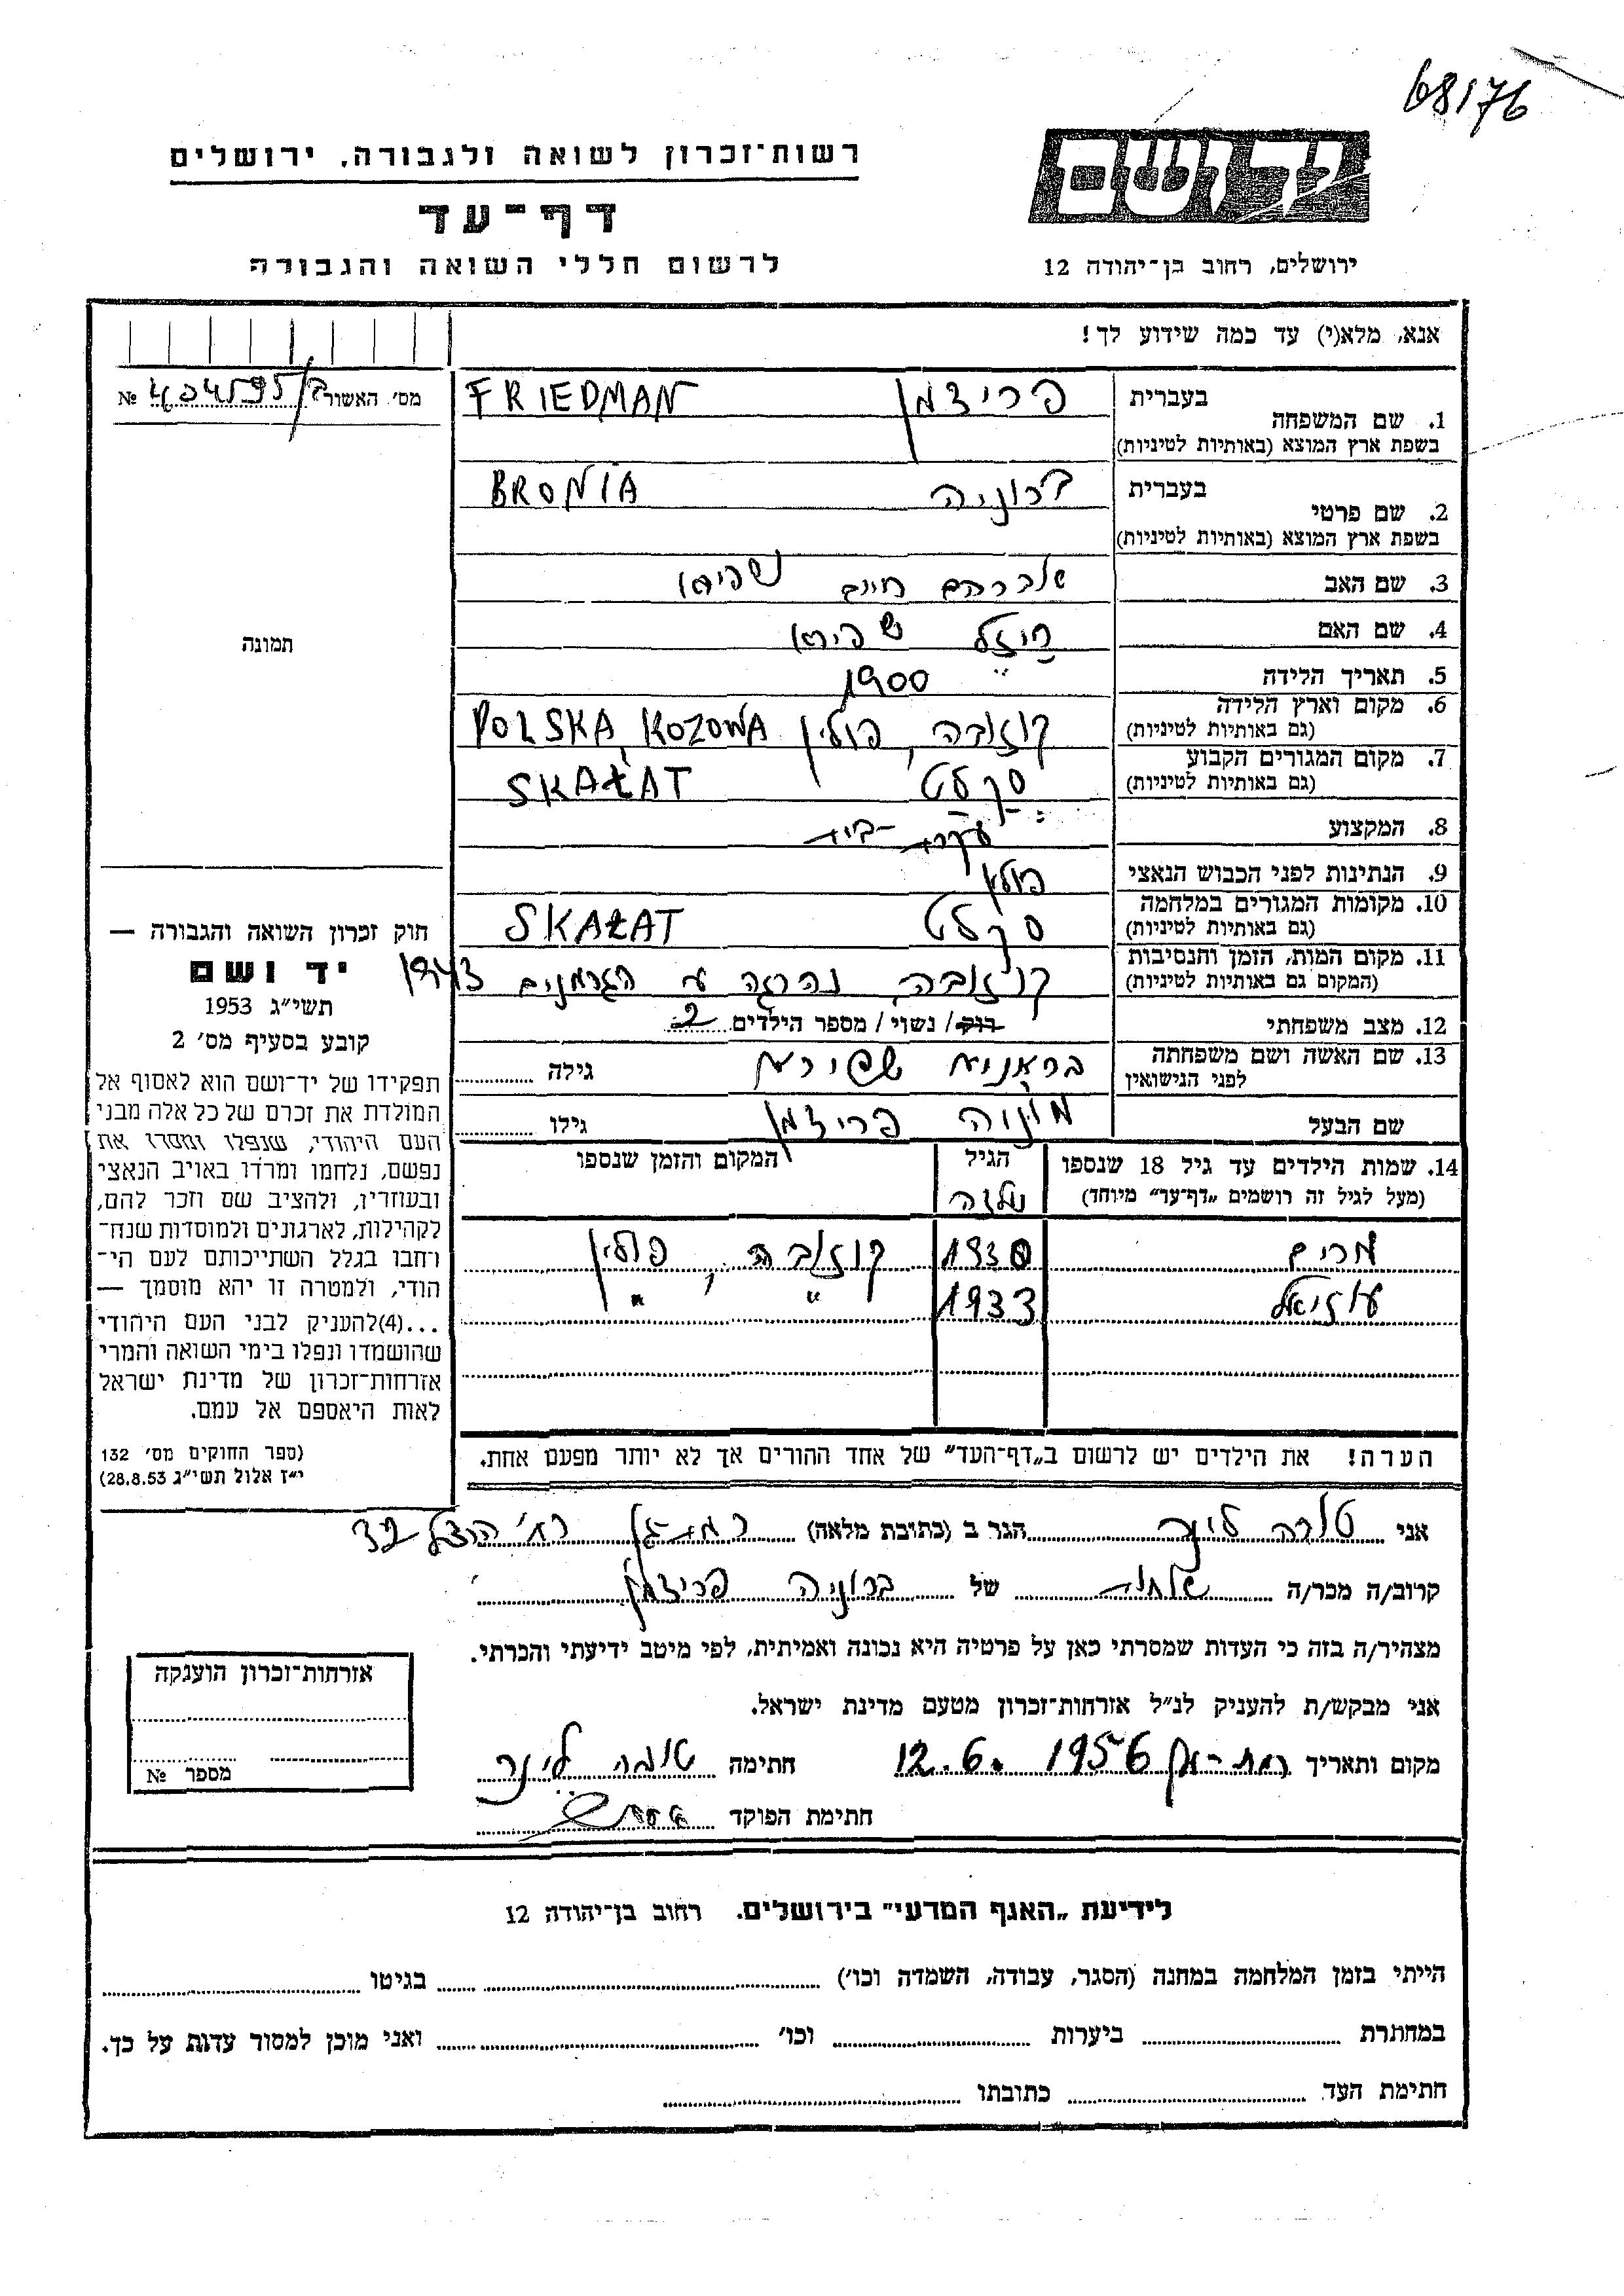 68176
רשות־זכרון לשואה ולגבורה, ירושלים
דף־עד
לרשום חללי השואה והגבורה
ידושם
ירושלים, רחוב בן־יהודה 12
אנא, מלא(י) עד כמה שידוע לך!
מס׳ האשור № 434595/ב
1. שם המשפחה בעברית פרידמן FRIEDMAN
בשפת ארץ המוצא (באותיות לטיניות)
2. שם פרטי בעברית ברוניה BRONIA
בשפת ארץ המוצא (באותיות לטיניות)
3. שם האב אברהם חיים שפירא
4. שם האם רייזל שפירא
5. תאריך הלידה 1900
6. מקום וארץ הלידה קוזובה, פולין POLSKA, KOZOWA
(גם באותיות לטיניות)
7. מקום המגורים הקבוע סקלט SKAŁAT
(גם באותיות לטיניות)
8. המקצוע עקרת-בית
9. הנתינות לפני הכבוש הנאצי פולין
10. מקומות המגורים במלחמה סקלט SKAŁAT
(גם באותיות לטיניות)
11. מקום המות, הזמן והנסיבות קוזובה, נהרגה ע״י הגרמנים 1943
(המקום גם באותיות לטיניות)
12. מצב משפחתי רוק/ נשוי/ מספר הילדים 2
13. שם האשה ושם משפחתה בראניא שפירא גילה
לפני הנישואין
שם הבעל מונה פרידמן גילו
14. שמות הילדים עד גיל 18 שנספו הגיל המקום והזמן שנספו
(מעל לגיל זה רושמים „דף־עד״ מיוחד)
מרים 1930 קוזובה, פולין
עוזיאל 1933 " "
הערה! את הילדים יש לרשום ב„דף־העד״ של אחד ההורים אך לא יותר מפעם אחת.
תמונה
חוק זכרון השואה והגבורה —
יד ושם
תשי״ג 1953
קובע בסעיף מס׳ 2
תפקידו של יד־ושם הוא לאסוף אל
המולדת את זכרם של כל אלה מבני
העם היהודי, שנפלו ומסרו את
נפשם, נלחמו ומרדו באויב הנאצי
ובעוזריו, ולהציב שם וזכר להם,
לקהילות, לארגונים ולמוסדות שנח־
רחבו בגלל השתייכותם לעם הי־
הודי, ולמטרה זו יהא מוסמך —
...(4)להעניק לבני העם היהודי
שהושמדו ונפלו בימי השואה והמרי
אזרחות־זכרון של מדינת ישראל
לאות היאספם אל עמם.
(ספר החוקים מס׳ 132
י״ז אלול תשי״ג 28.8.53)
אני טובה לינר הגר ב (כתובת מלאה) רמת-גן רח׳ הרצל 32
קרוב/ה מכר/ה אחות של ברוניה פרידמן
מצהיר/ה בזה כי העדות שמסרתי כאן על פרטיה היא נכונה ואמיתית, לפי מיטב ידיעתי והכרתי.
אני מבקש/ת להעניק לנ״ל אזרחות־זכרון מטעם מדינת ישראל.
מקום ותאריך רמת-גן 12.6.1956 חתימה טובה לינר
חתימת הפוקד
אזרחות־זכרון הוענקה
מספר №
לידיעת „האגף המדעי״ בירושלים. רחוב בן־יהודה 12
הייתי בזמן המלחמה במחנה (הסגר, עבודה, השמדה וכו׳) בגיטו
במחתרת ביערות וכו׳ ואני מוכן למסור עדות על כך.
חתימת העד כתובתו